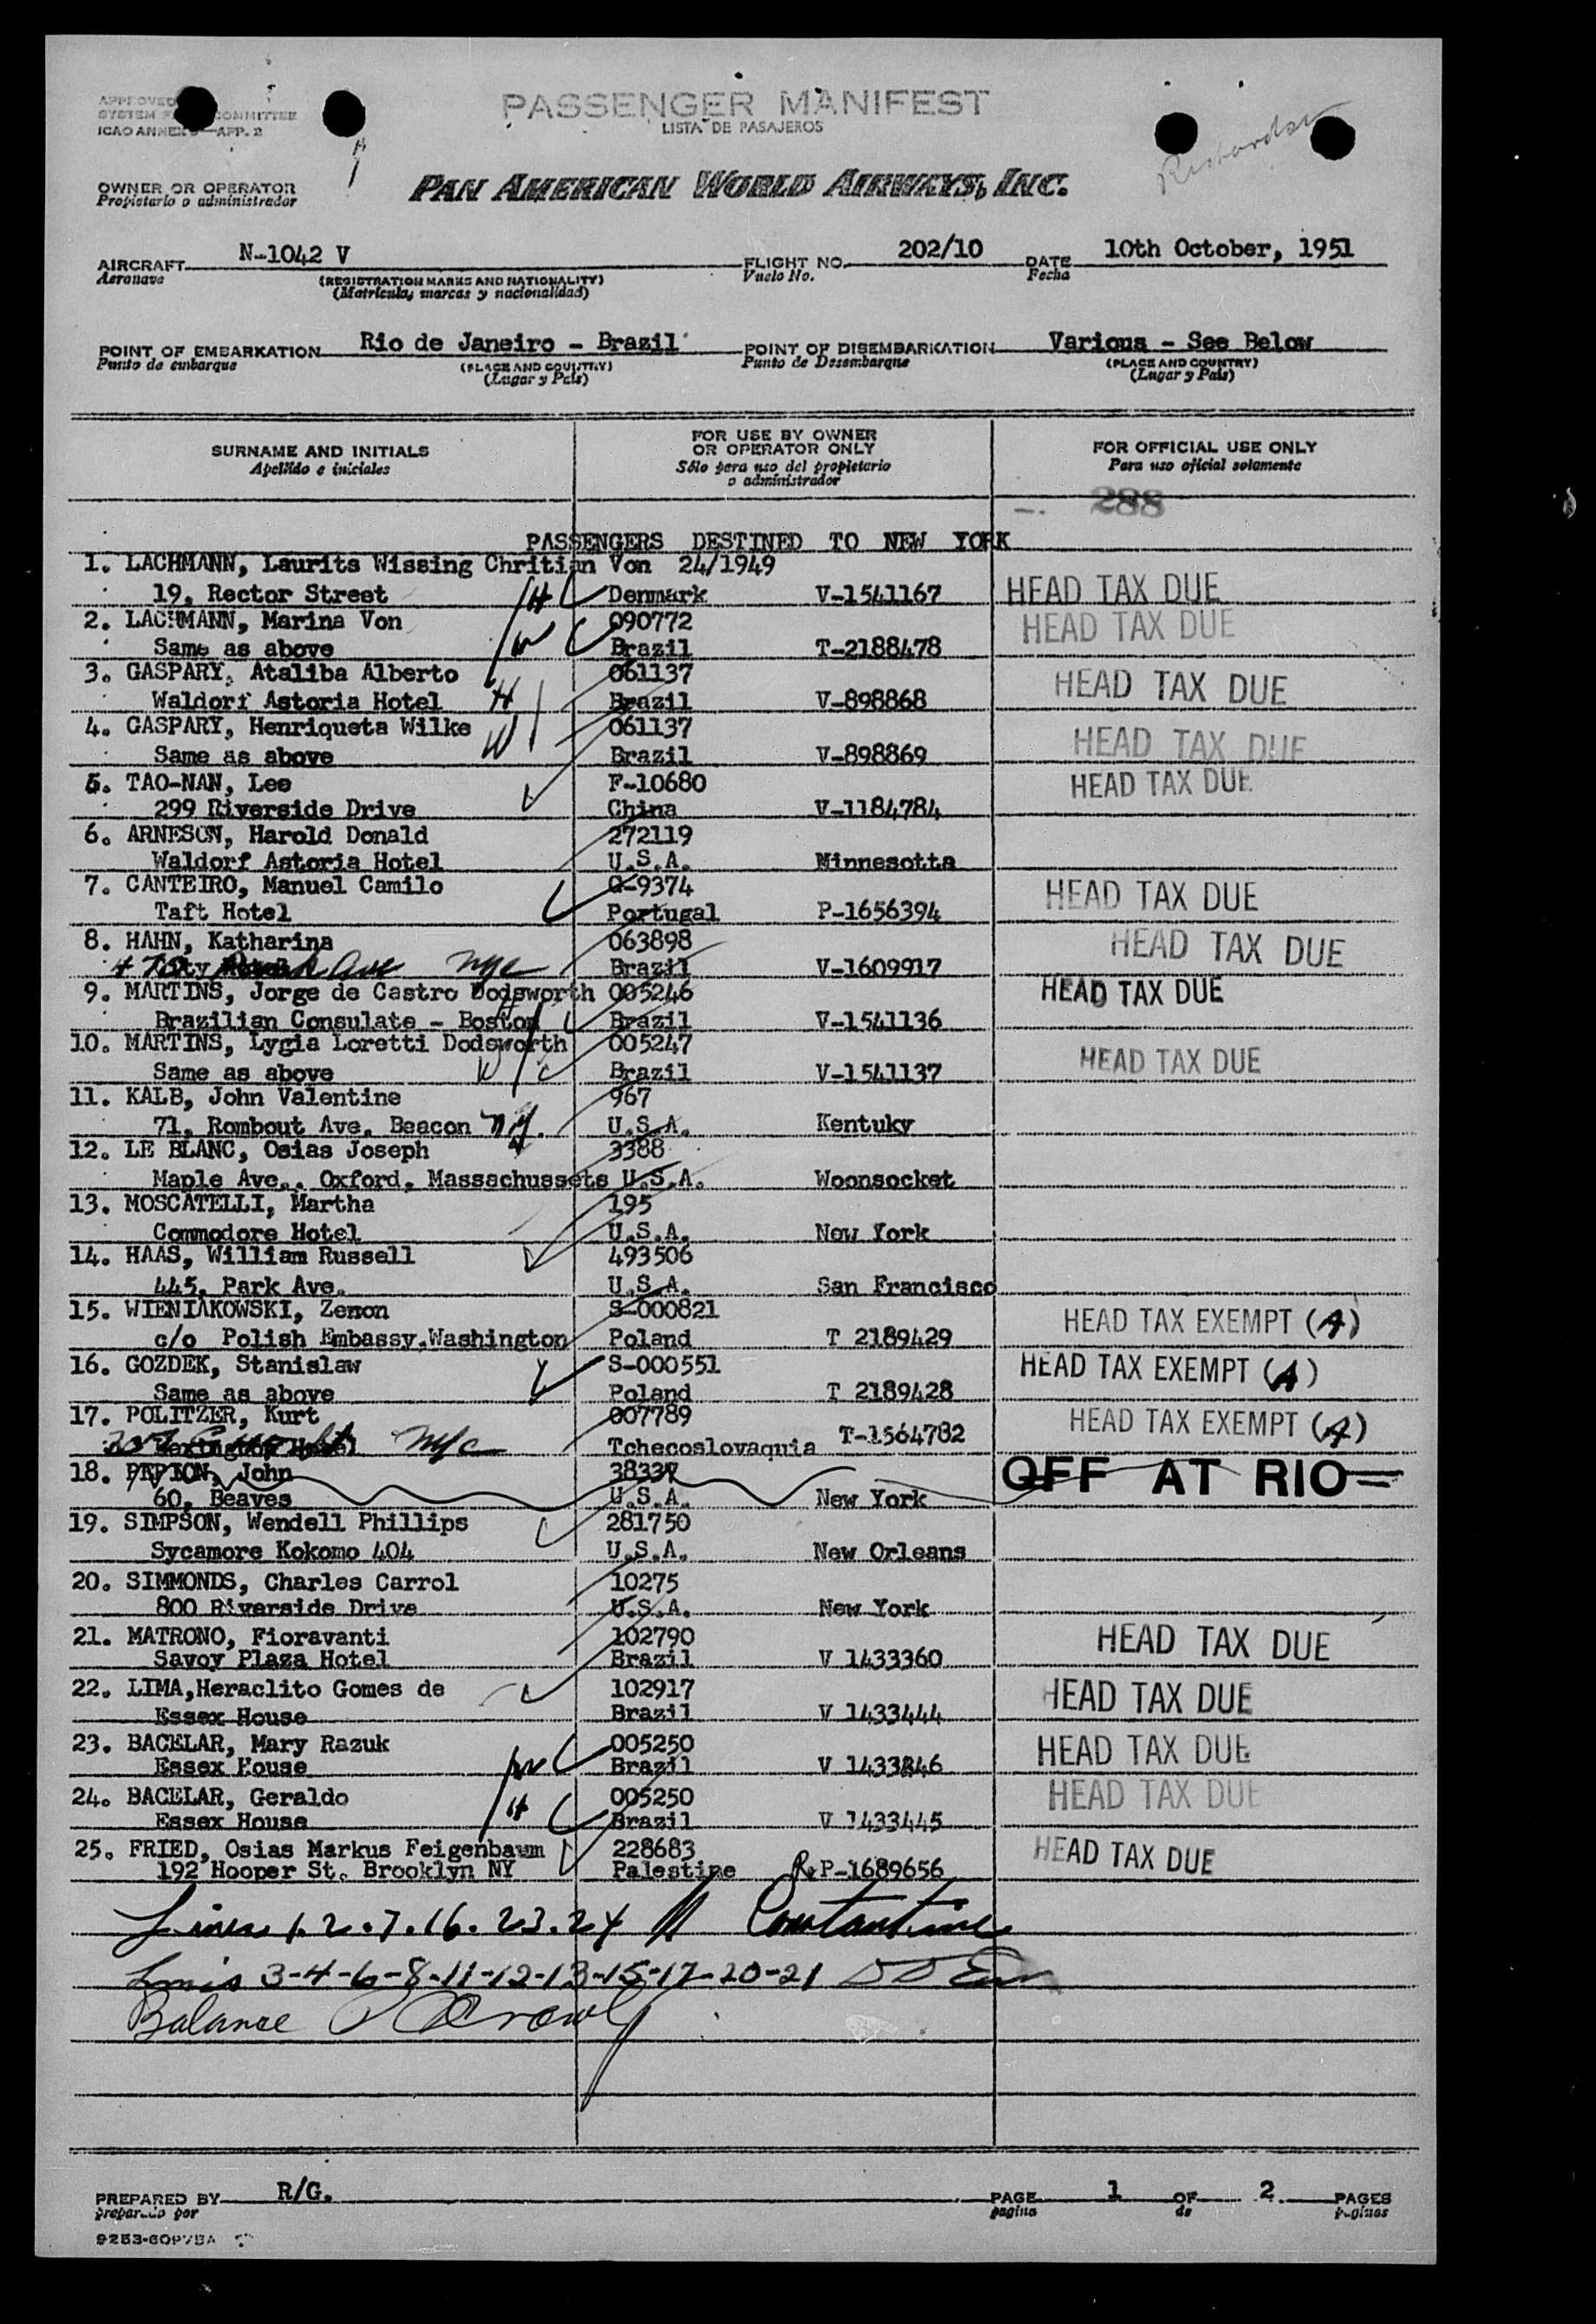 APPROVED
SYSTEM COMMITTEE
ICAO ANNEX 9 APP. 2
PASSENGER MANIFEST
LISTA DE PASAJEROS
Richardson
OWNER OR OPERATOR
Propietario o administrador
PAN AMERICAN WORLD AIRWAYS, INC.
AIRCRAFT N-1042 V FLIGHT NO. 202/10 DATE 10th October, 1951
Aeronave (REGISTRATION MARKS AND NATIONALITY) Vuelo No. Fecha
(Matrícula, marcas y nacionalidad)
POINT OF EMBARKATION Rio de Janeiro - Brazil POINT OF DISEMBARKATION Various - See Below
Punto de embarque (PLACE AND COUNTRY) Punto de Desembarque (PLACE AND COUNTRY)
(Lugar y País) (Lugar y País)
SURNAME AND INITIALS FOR USE BY OWNER OR OPERATOR ONLY FOR OFFICIAL USE ONLY
Apellido e iniciales Sólo para uso del propietario o administrador Para uso oficial solamente
288
PASSENGERS DESTINED TO NEW YORK
1. LACHMANN, Laurits Wissing Chritian Von 24/1949
19, Rector Street H Denmark V-1541167 HEAD TAX DUE
2. LACHMANN, Marina Von 090772 HEAD TAX DUE
Same as above W Brazil T-2188478
3. GASPARY, Ataliba Alberto 061137 HEAD TAX DUE
Waldorf Astoria Hotel H Brazil V-898868
4. GASPARY, Henriqueta Wilke 061137 HEAD TAX DUE
Same as above W Brazil V-898869
5. TAO-NAN, Lee F-10680 HEAD TAX DUE
299 Riverside Drive China V-1184784
6. ARNESON, Harold Donald 272119
Waldorf Astoria Hotel U.S.A. Minnesotta
7. CANTEIRO, Manuel Camilo G-9374 HEAD TAX DUE
Taft Hotel Portugal P-1656394
8. HAHN, Katharina 063898 HEAD TAX DUE
Ave NYC Brazil V-1609917
9. MARTINS, Jorge de Castro Dodsworth 005246 HEAD TAX DUE
Brazilian Consulate - Boston Brazil V-1541136
10. MARTINS, Lygia Loretti Dodsworth 005247 HEAD TAX DUE
Same as above W Brazil V-1541137
11. KALB, John Valentine 967
71, Rombout Ave, Beacon N.Y. U.S.A. Kentuky
12. LE BLANC, Osias Joseph 3388
Maple Ave., Oxford, Massachussets U.S.A. Woonsocket
13. MOSCATELLI, Martha 195
Commodore Hotel U.S.A. New York
14. HAAS, William Russell 493506
445, Park Ave. U.S.A. San Francisco
15. WIENIAKOWSKI, Zenon S-000821 HEAD TAX EXEMPT (A)
c/o Polish Embassy.Washington Poland T 2189429
16. GOZDEK, Stanislaw S-000551 HEAD TAX EXEMPT (A)
Same as above Poland T 2189428
17. POLITZER, Kurt 007789 HEAD TAX EXEMPT (A)
NYC Tchecoslovaquia T-1564782
18. PEPION, John 38337 OFF AT RIO
60, Beaves U.S.A. New York
19. SIMPSON, Wendell Phillips 281750
Sycamore Kokomo 404 U.S.A. New Orleans
20. SIMMONDS, Charles Carrol 10275
800 Riverside Drive U.S.A. New York
21. MATRONO, Fioravanti 102790 HEAD TAX DUE
Savoy Plaza Hotel Brazil V 1433360
22. LIMA,Heraclito Gomes de 102917 HEAD TAX DUE
Essex House Brazil V 1433444
23. BACELAR, Mary Razuk 005250 HEAD TAX DUE
Essex House W Brazil V 1433846
24. BACELAR, Geraldo 005250 HEAD TAX DUE
Essex House H Brazil V 1433445
25. FRIED, Osias Markus Feigenbaum 228683 HEAD TAX DUE
192 Hooper St. Brooklyn NY Palestine R.P-1689656
Lines 1.2.7.16.23.24 Constantine
Lines 3-4-6-8-11-12-13-15-17-20-21
Balance
PREPARED BY R/G. PAGE 1 OF 2 PAGES
preparado por pagina de páginas